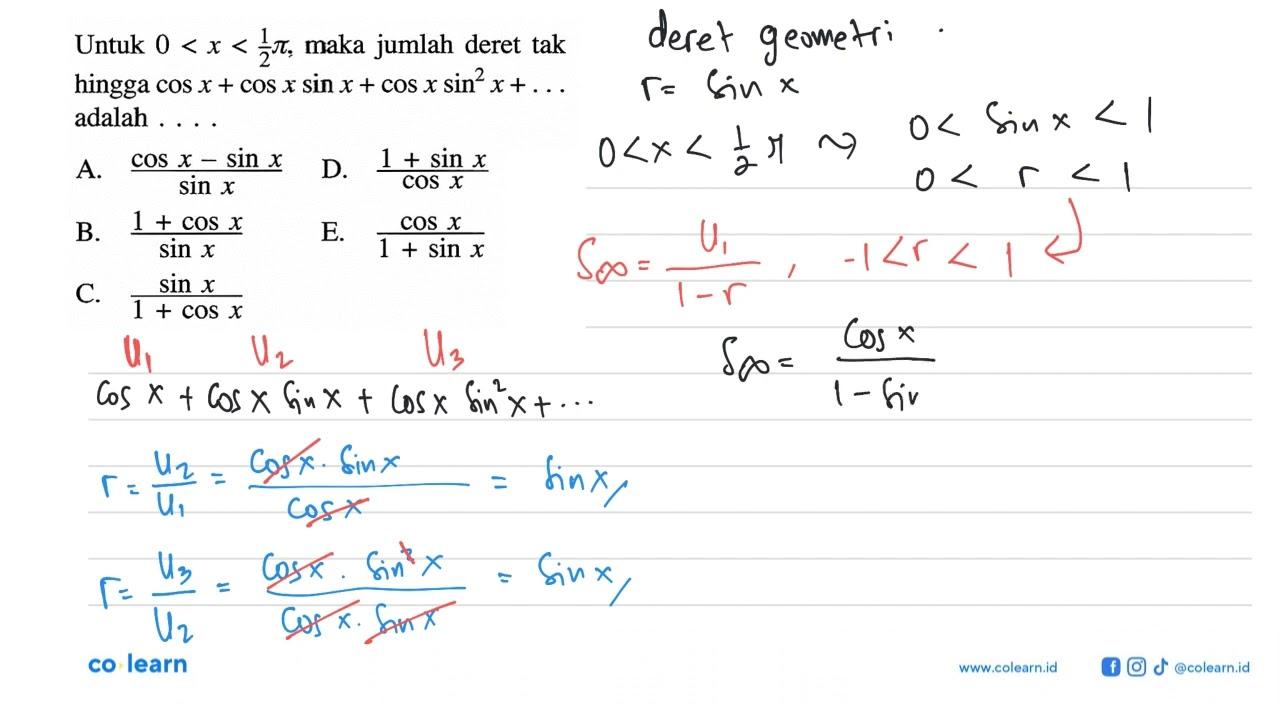 Untuk 0 < x < 1/2 π, maka jumlah deret tak
hingga cos x + cos x sin x + cos x sin² x + . . .
adalah . . . .
A. (cos x − sin x)/(sin x)
D. (1 + sin x)/(cos x)
B. (1 + cos x)/(sin x)
E. (cos x)/(1 + sin x)
C. (sin x)/(1 + cos x)
deret geometri
r = sin x
0 < x < 1/2 π ⇝ 0 < sin x < 1
0 < r < 1
S∞ = U₁/(1 − r) , -1 < r < 1
S∞ = cos x/(1 − sin
U₁ U₂ U₃
cos x + cos x sin x + cos x sin² x + ...
r = U₂/U₁ = (cos x . sin x)/(cos x) = sin x //
r = U₃/U₂ = (cos x . sin² x)/(cos x . sin x) = sin x //
co learn
www.colearn.id
@colearn.id